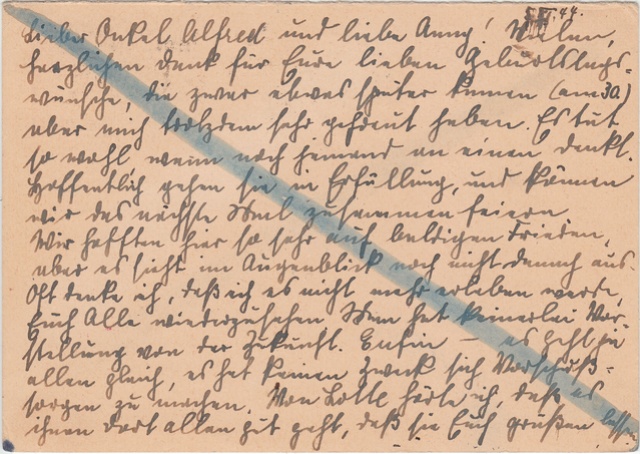 44.
Lieber Onkel Alfred und liebe Anny! Vielen,
herzlichen Dank für Eure lieben Geburtstags-
wünsche, die zwar etwas später kamen (am 30.)
aber mich trotzdem sehr gefreut haben. Es tut
so wohl wenn noch jemand an einen denkt.
Hoffentlich gehen sie in Erfüllung, und können
wir das nächste Mal zusammen feiern.
Wir hofften hier so sehr auf baldigen Frieden,
aber es sieht im Augenblick noch nicht danach aus.
Oft denke ich, daß ich es nicht mehr erleben werde,
Euch Alle wiederzusehen. Man hat keinerlei Vor-
stellung von der Zukunft. Enfin — es geht ja
allen gleich, es hat keinen Zweck sich Vorschuß-
sorgen zu machen. Von Lotte hörte ich, daß es
ihnen dort allen gut geht, daß sie Euch grüßen lassen.